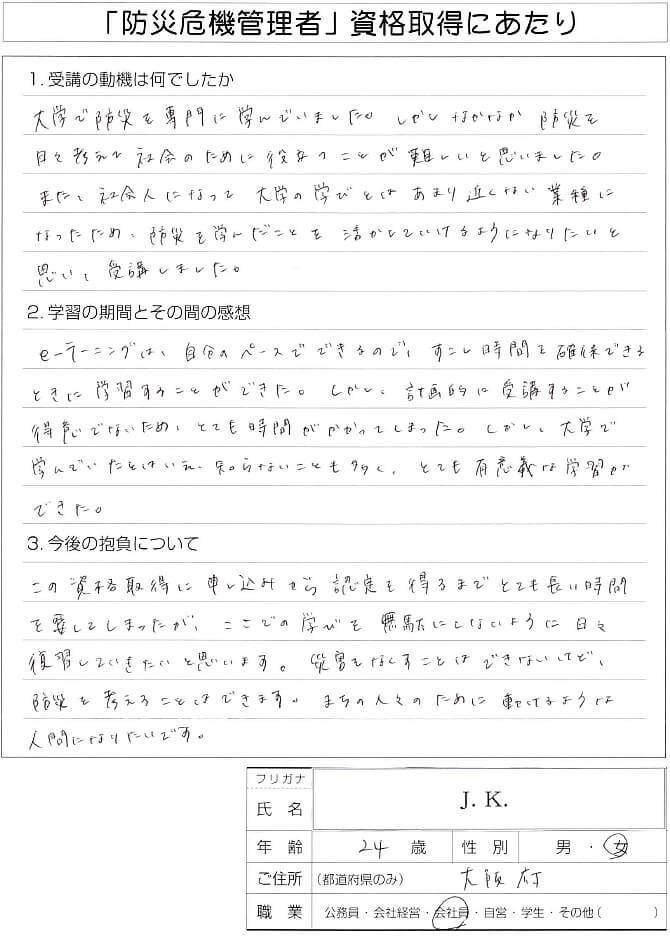 「防災危機管理者」資格取得にあたり
1. 受講の動機は何でしたか
大学で防災を専門に学んでいました。しかしなかなか防災を
日々考えて社会のために役立つことが難しいと思いました。
また、社会人になって大学の学びとはあまり近しない業種に
なったため、防災を学んだことを活かしていけるようになりたいと
思い、受講しました。
2. 学習の期間とその間の感想
e-ラーニングは、自分のペースでできるので、すこし時間を確保できる
ときに学習することができた。しかし、計画的に受講することが
得意でないため、とても時間がかかってしまった。しかし、大学で
学んでいたとはいえ、知らないことも多く、とても有意義な学習が
できた。
3. 今後の抱負について
この資格取得に申し込みから認定を得るまでとても長い時間
を要してしまったが、ここでの学びを無駄にしないように日々
復習していきたいと思います。災害をなくすことはできないけど、
防災を考えることはできます。まちの人々のために動けるような
人間になりたいです。
フリガナ
氏名 J. K.
年齢 24 歳 性別 男・女
ご住所 (都道府県のみ) 大阪府
職業 公務員・会社経営・会社員・自営・学生・その他( )